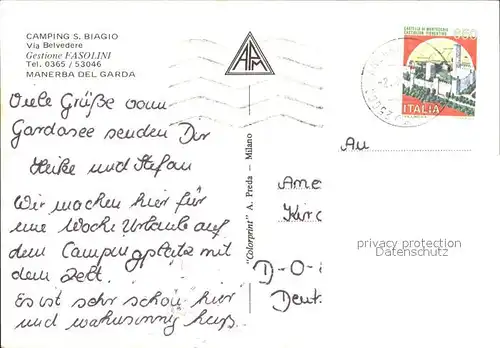 CAMPING S. BIAGIO
Via Belvedere
Gestione FASOLINI
Tel. 0365 / 53046
MANERBA DEL GARDA
Viele Grüße vom
Gardasee senden Dir
Heike und Stefan
Wir machen hier für
eine Woche Urlaub auf
dem Campingplatz mit
dem Zelt.
Es ist sehr schön hier
und wahnsinnig heiß.
APM
"Colorprint" A. Preda - Milano
CASTELLO DI MONTECCHIO
CASTIGLION FIORENTINO
650
ITALIA
An
Ame
Kirc
D-O-
Deut
privacy protection
Datenschutz